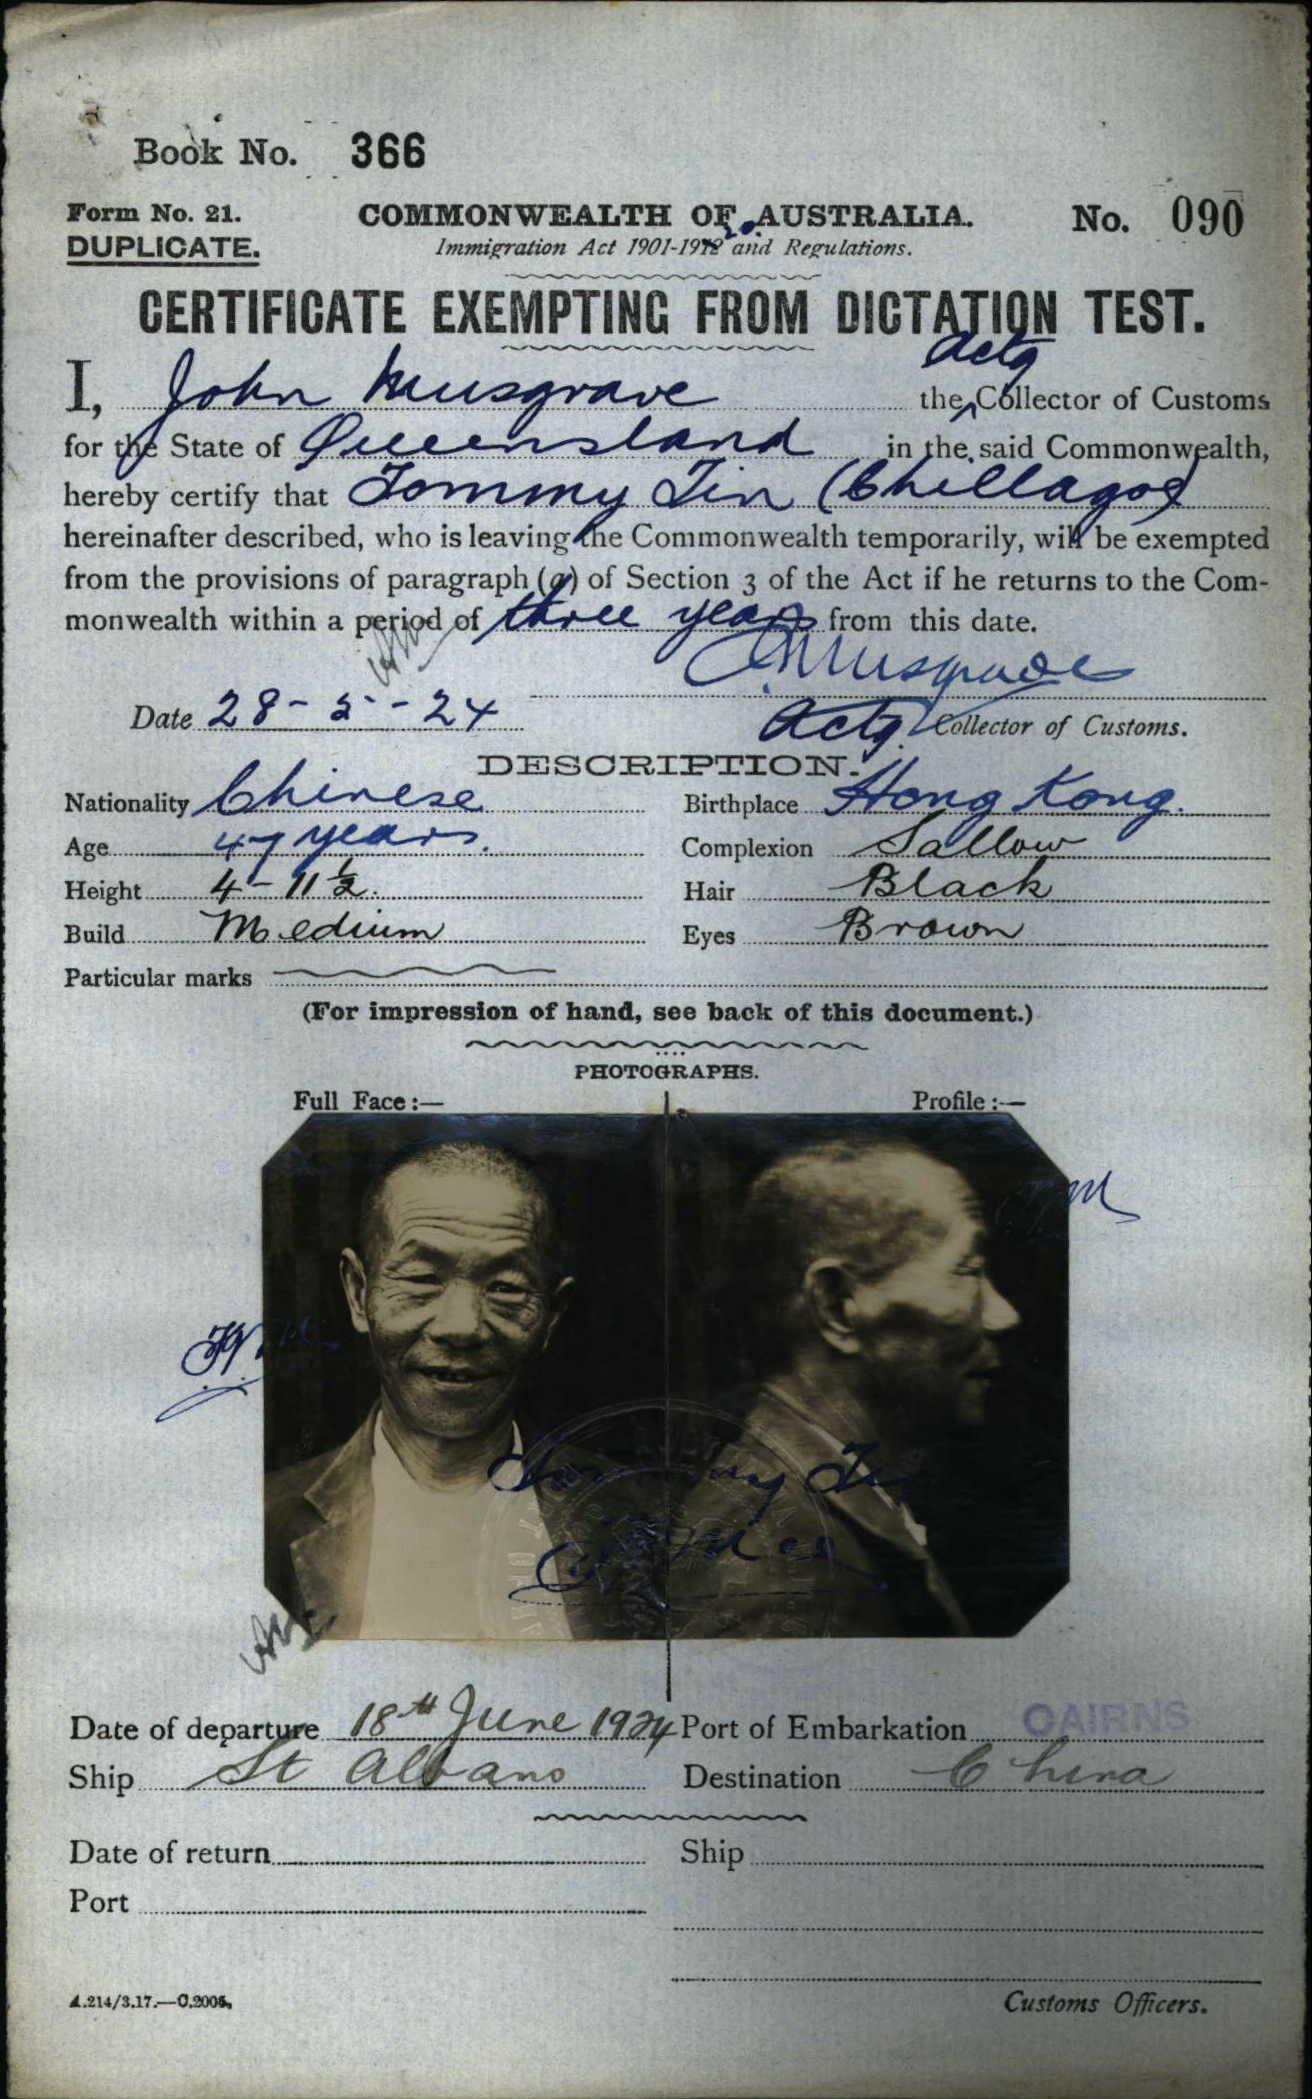 Book No. 366
Form No. 21.
COMMONWEALTH OF AUSTRALIA.
No. 090
DUPLICATE.
Immigration Act 1901-1912 20. and Regulations.
CERTIFICATE EXEMPTING FROM DICTATION TEST.
I, John Musgrave the Actg Collector of Customs
for the State of Queensland in the said Commonwealth,
hereby certify that Tommy Tin (Chillagoe)
hereinafter described, who is leaving the Commonwealth temporarily, will be exempted
from the provisions of paragraph (a) of Section 3 of the Act if he returns to the Com-
monwealth within a period of three years from this date.
Musgrave
Date 28-5-24
Actg. Collector of Customs.
DESCRIPTION.
Nationality Chinese
Birthplace Hong Kong.
Age 47 years.
Complexion Sallow
Height 4-11½.
Hair Black
Build Medium
Eyes Brown
Particular marks
(For impression of hand, see back of this document.)
PHOTOGRAPHS.
Full Face:—
Profile:—
Tommy Tin
Date of departure 18th June 1924
Port of Embarkation CAIRNS
Ship St Albans
Destination China
Date of return
Ship
Port
A.214/3.17.—C.2005.
Customs Officers.